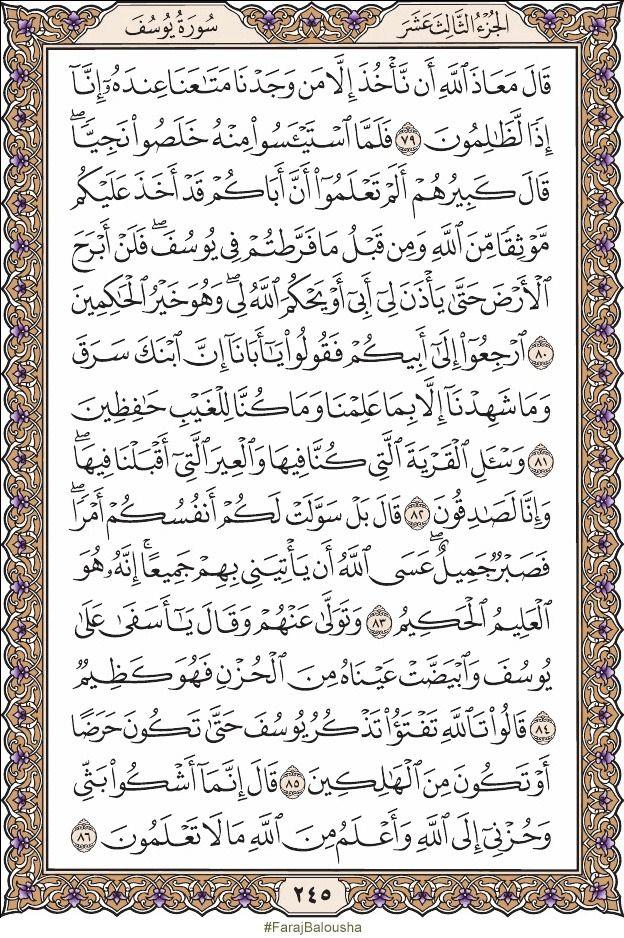 الجُزْءُ الثَّالِثَ عَشَرَ
سُورَةُ يُوسُفَ
قَالَ مَعَاذَ ٱللَّهِ أَن نَّأۡخُذَ إِلَّا مَن وَجَدۡنَا مَتَٰعَنَا عِندَهُۥٓ إِنَّآ
إِذٗا لَّظَٰلِمُونَ ٧٩ فَلَمَّا ٱسۡتَيۡـَٔسُواْ مِنۡهُ خَلَصُواْ نَجِيّٗاۖ
قَالَ كَبِيرُهُمۡ أَلَمۡ تَعۡلَمُوٓاْ أَنَّ أَبَاكُمۡ قَدۡ أَخَذَ عَلَيۡكُم
مَّوۡثِقٗا مِّنَ ٱللَّهِ وَمِن قَبۡلُ مَا فَرَّطتُمۡ فِي يُوسُفَۖ فَلَنۡ أَبۡرَحَ
ٱلۡأَرۡضَ حَتَّىٰ يَأۡذَنَ لِيٓ أَبِيٓ أَوۡ يَحۡكُمَ ٱللَّهُ لِيۖ وَهُوَ خَيۡرُ ٱلۡحَٰكِمِينَ
٨٠ ٱرۡجِعُوٓاْ إِلَىٰٓ أَبِيكُمۡ فَقُولُواْ يَٰٓأَبَانَآ إِنَّ ٱبۡنَكَ سَرَقَ
وَمَا شَهِدۡنَآ إِلَّا بِمَا عَلِمۡنَا وَمَا كُنَّا لِلۡغَيۡبِ حَٰفِظِينَ
٨١ وَسۡـَٔلِ ٱلۡقَرۡيَةَ ٱلَّتِي كُنَّا فِيهَا وَٱلۡعِيرَ ٱلَّتِيٓ أَقۡبَلۡنَا فِيهَاۖ
وَإِنَّا لَصَٰدِقُونَ ٨٢ قَالَ بَلۡ سَوَّلَتۡ لَكُمۡ أَنفُسُكُمۡ أَمۡرٗاۖ
فَصَبۡرٞ جَمِيلٌۖ عَسَى ٱللَّهُ أَن يَأۡتِيَنِي بِهِمۡ جَمِيعًاۚ إِنَّهُۥ هُوَ
ٱلۡعَلِيمُ ٱلۡحَكِيمُ ٨٣ وَتَوَلَّىٰ عَنۡهُمۡ وَقَالَ يَٰٓأَسَفَىٰ عَلَىٰ
يُوسُفَ وَٱبۡيَضَّتۡ عَيۡنَاهُ مِنَ ٱلۡحُزۡنِ فَهُوَ كَظِيمٞ
٨٤ قَالُواْ تَٱللَّهِ تَفۡتَؤُاْ تَذۡكُرُ يُوسُفَ حَتَّىٰ تَكُونَ حَرَضًا
أَوۡ تَكُونَ مِنَ ٱلۡهَٰلِكِينَ ٨٥ قَالَ إِنَّمَآ أَشۡكُواْ بَثِّي
وَحُزۡنِيٓ إِلَى ٱللَّهِ وَأَعۡلَمُ مِنَ ٱللَّهِ مَا لَا تَعۡلَمُونَ ٨٦
٢٤٥
#FarajBalousha